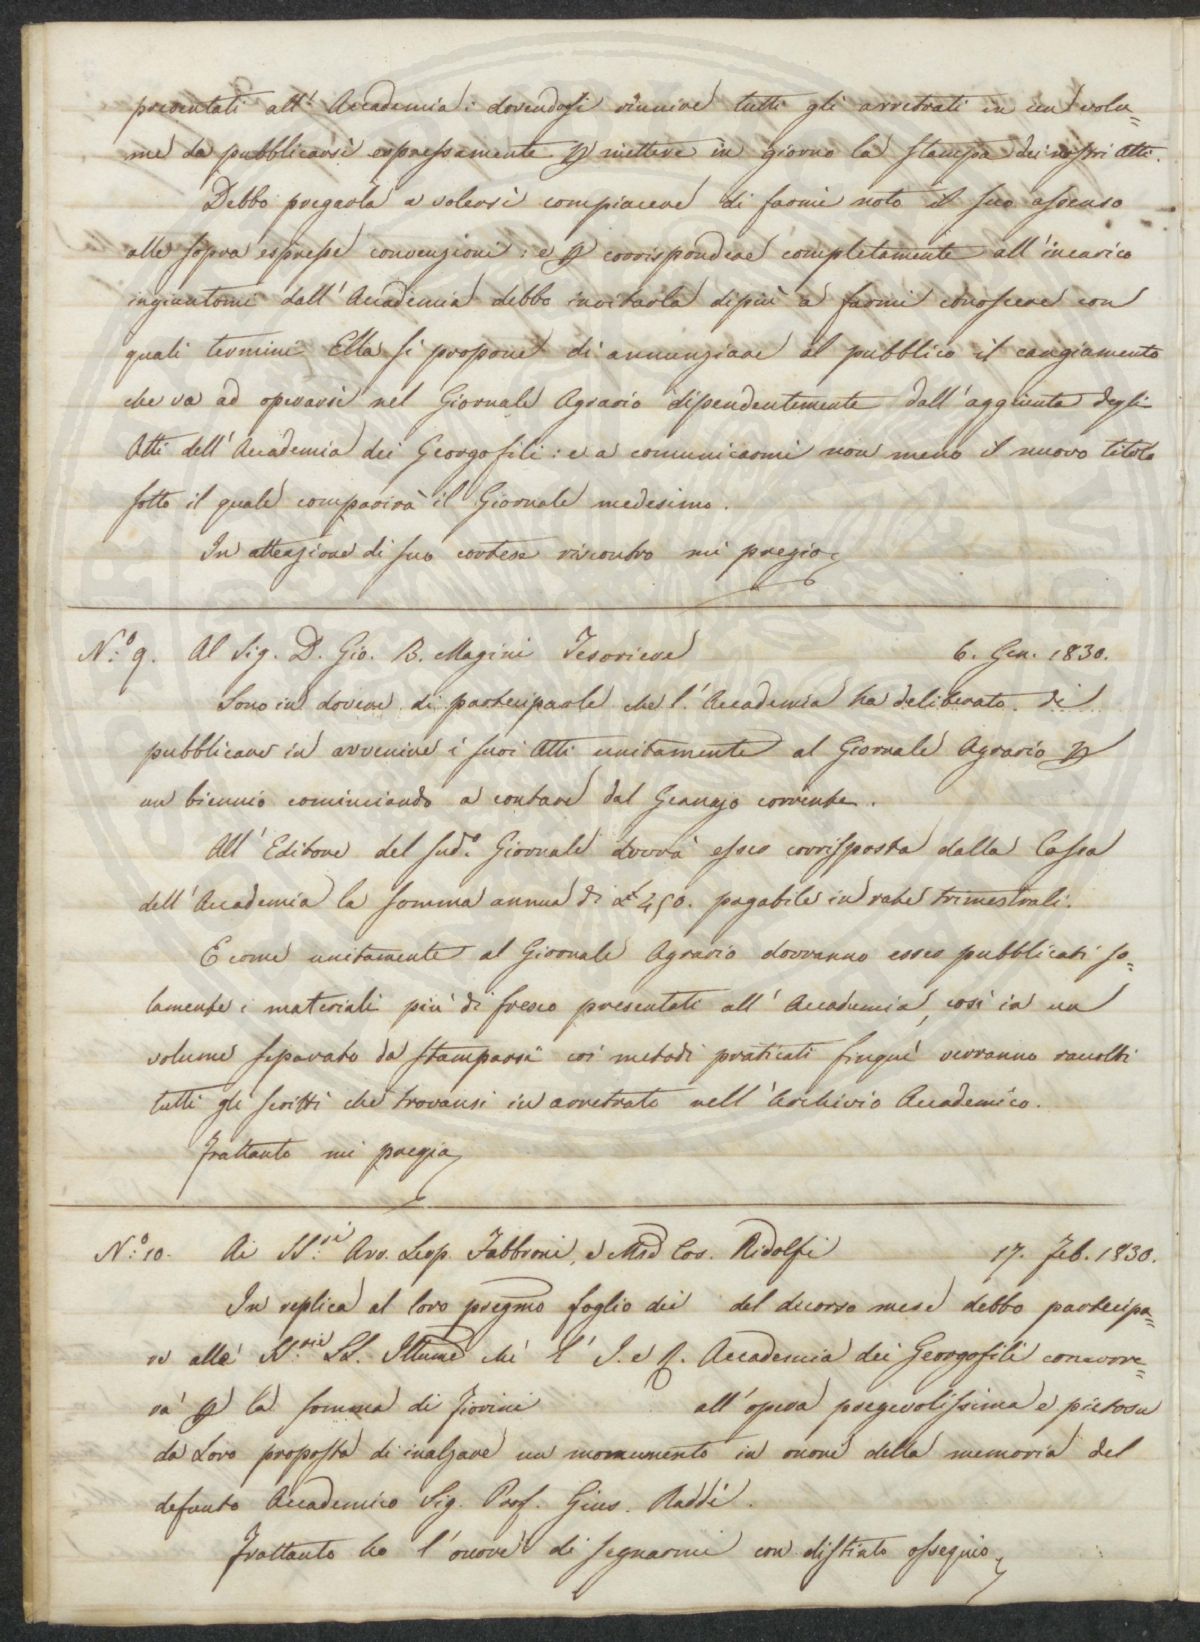 presentati all'Accademia: dovendosi riunire tutti gli arretrati in un volu=
me da pubblicarsi espressamente p mettere in giorno la stampa dei nostri Atti.
Debbo pregarla a volersi compiacere di farmi noto il suo assenso
alle sopra espresse convenzioni: e p corrispondere completamente all'incarico
ingiuntomi dall'Accademia debbo invitarla dipiù a farmi conoscere con
quali termini Ella si propone di annunziare al pubblico il cangiamento
che va ad operarsi nel Giornale Agrario dipendentemente dall'aggiunta degli
Atti dell'Accademia dei Georgofili: e a comunicarmi non meno il nuovo titolo
sotto il quale comparirà il Giornale medesimo.
In attenzione di suo cortese riscontro mi pregio
N.º 9. Al Sig. D. Gio. B. Magini Tesoriere 6. Gen. 1830.
Sono in dovere di parteciparle che l'Accademia ha deliberato di
pubblicare in avvenire i suoi Atti unitamente al Giornale Agrario p
un biennio cominciando a contare dal Gennajo corrente.
All'Editore del sud.º Giornale dovrà esser corrisposta dalla Cassa
dell'Accademia la somma annua di £ 450. pagabile in rate trimestrali.
E come unitamente al Giornale Agrario dovranno esser pubblicati so=
lamente i materiali più di fresco presentati all'Accademia, così in un
volume separato da stamparsi coi metodi praticati finquì verranno raccolti
tutti gli scritti che trovansi in arretrato nell'Archivio Accademico.
Frattanto mi pregio
N.º 10. Ai SS.ri Avv. Leop. Fabbroni, e Mse Cos. Ridolfi 17. Feb. 1830.
In replica al loro pregmo foglio dei del decorso mese debbo partecipa=
re alle SS.rie LL. Illume che l'I. e R. Accademia dei Georgofili concorre=
rà p la somma di Fiorini all'opera pregevolissima e pietosa
da Loro proposta di inalzare un monumento in onore della memoria del
defunto Accademico Sig. Prof. Gius. Raddi.
Frattanto ho l'onore di segnarmi con distinto ossequio